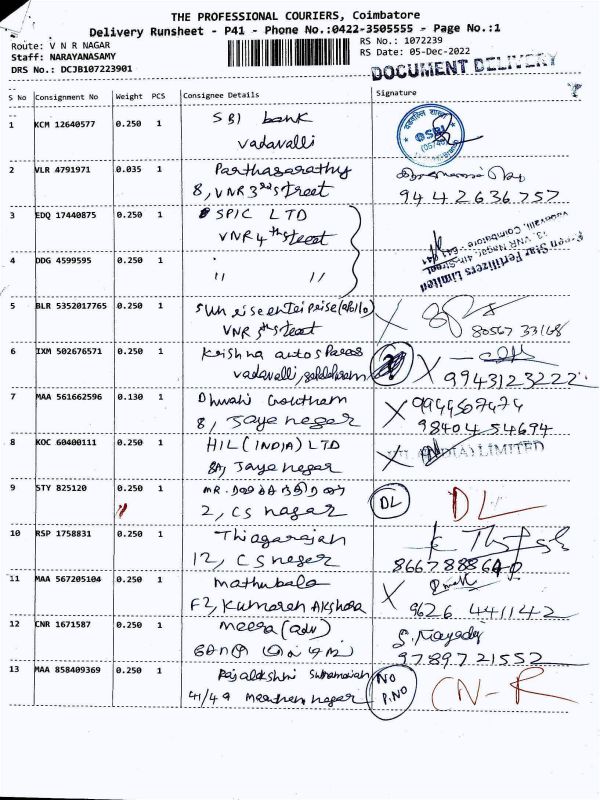 THE PROFESSIONAL COURIERS, Coimbatore
Delivery Runsheet - P41 - Phone No.:0422-3505555 - Page No.:1
Route: V N R NAGAR
RS No.: 1072239
Staff: NARAYANASAMY
RS Date: 05-Dec-2022
DRS No.: DCJB107223901
DOCUMENT DELIVERY
S No Consignment No Weight PCS Consignee Details Signature
1 KCM 12640577 0.250 1 SBI bank
vadavalli
SBI
2 VLR 4791971 0.035 1 Parthasarathy
8, VNR 3rd street 94 42636757
3 EDQ 17440875 0.250 1 SPIC LTD
VNR 4th street
Green Star Fertilizers Limited
VNR Nagar, 4th-Street
Vadavalli, Coimbatore - 641 041
4 DDG 4599595 0.250 1 " "
5 BLR 5352017765 0.250 1 Sun rise enterprise (apollo)
VNR 5th street 80567 33168
6 IXM 502676571 0.250 1 Krishna autos Paras
vadavalli, ?
9943123222
7 MAA 561662596 0.130 1 Goutham
8, Jaya nagar
9840454694
8 KOC 60400111 0.250 1 HIL (INDIA) LTD
8A, Jaya nagar
HIL (INDIA) LIMITED
9 STY 825120 0.250 1 MR.
2, CS nagar DL DL
10 RSP 1758831 0.250 1 Thiagarajan
12, CS nagar
11 MAA 567205104 0.250 1 Mathubala
F2, Kumaran Akshara 9626 441142
12 CNR 1671587 0.250 1 Meera (adv)
9789721552
13 MAA 858409369 0.250 1 Rajalakshmi
41/49 nagar NO P.NO CN-R